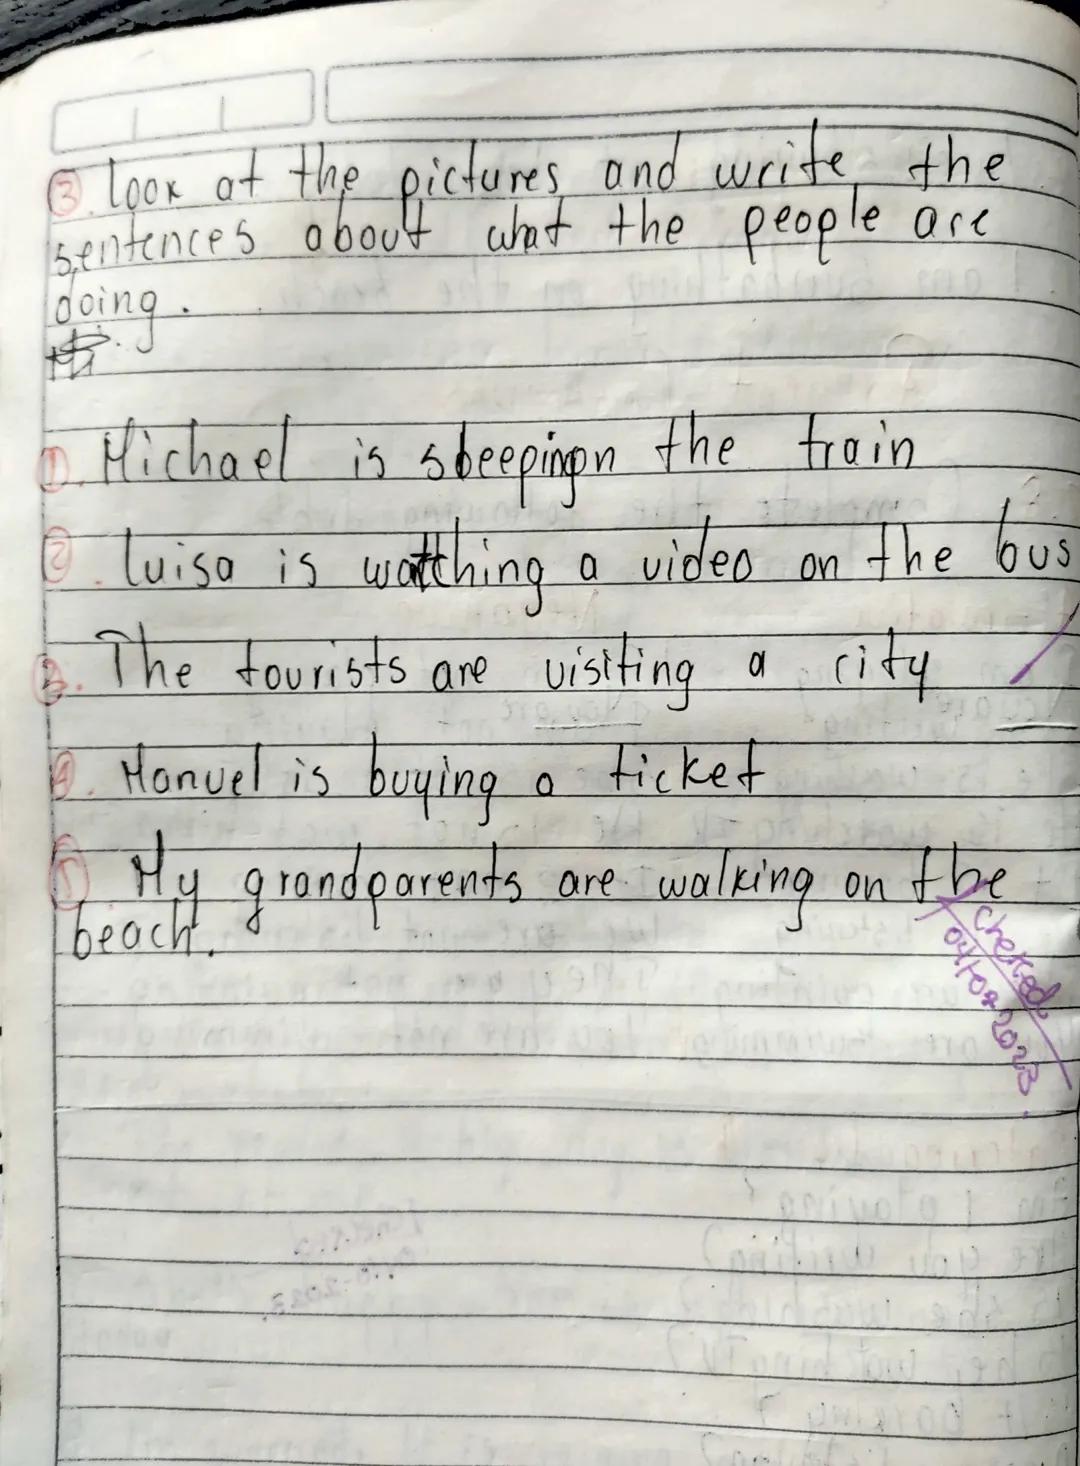 3. look at the pictures and write the
sentences about what the people are
doing.
1. Michael is sbeepingn the train
2. luisa is watthing a video on the bus
3. The tourists are visiting a city
4. Manuel is buying a ticket
5 My grandparents are walking on the
beach.
checked
04/08-2023.